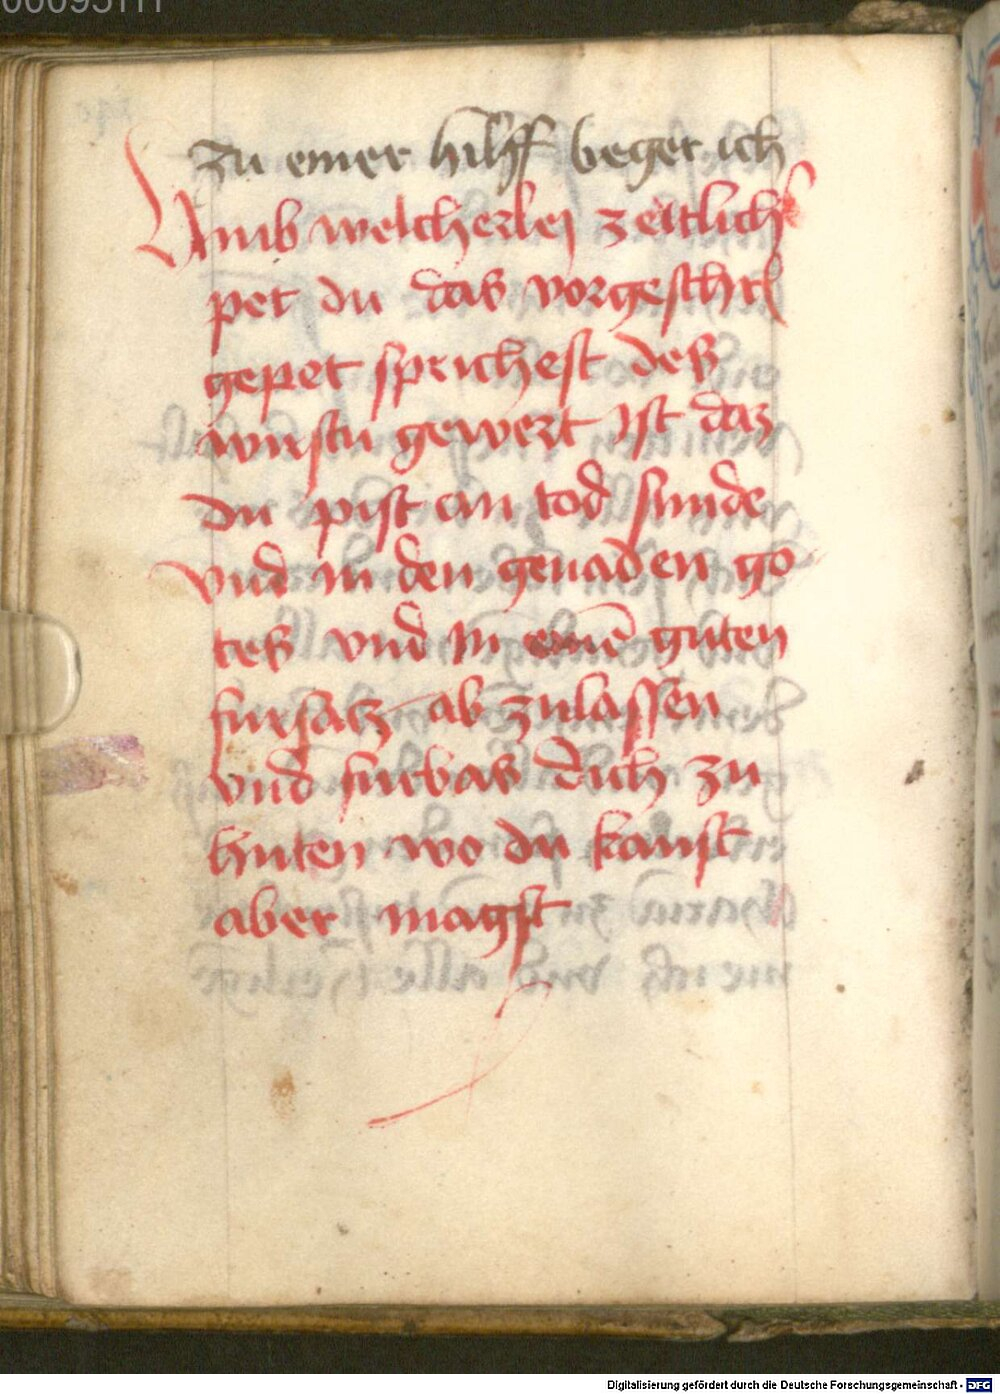 00095111
zu einer hilff beger ich
Vmb welcherlej zeitlich
pet du das vorgeschri
gepet sprichest des
wirstu gewert Ist daz
du pist an tod sunde
vnd in den genaden go
tes vnd in eine͂ guten
fursatz ab zulassen
vnd furbas dich zu
huten wo du kanst
aber magst
Digitalisierung gefördert durch die Deutsche Forschungsgemeinschaft - DFG